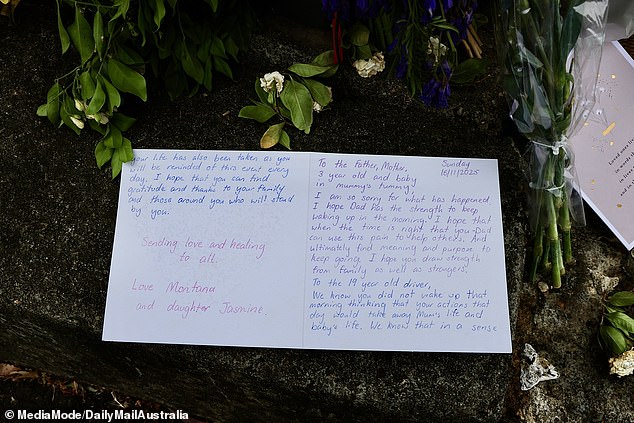 your life has also been taken as you
will be reminded of this event every
day. I hope that you can find
gratitude and thanks to your family
and those around you who will stand
by you.
Sending love and healing
to all.
Love Montana
and daughter Jasmine
To the Father, Mother, Sunday
3 year old and baby 16/11/2025
in mummy's tummy
I am so sorry for what has happened
I hope Dad has the strength to keep
waking up in the morning. I hope that
when the time is right that you Dad
can use this pain to help others. And
ultimately find meaning and purpose to
keep going. I hope you draw strength
from family as well as strangers.
To the 19 year old driver,
We know you did not wake up that
morning thinking that your actions that
day would take away Mum's life and
baby's life. We know that in a sense
© MediaMode/DailyMailAustralia